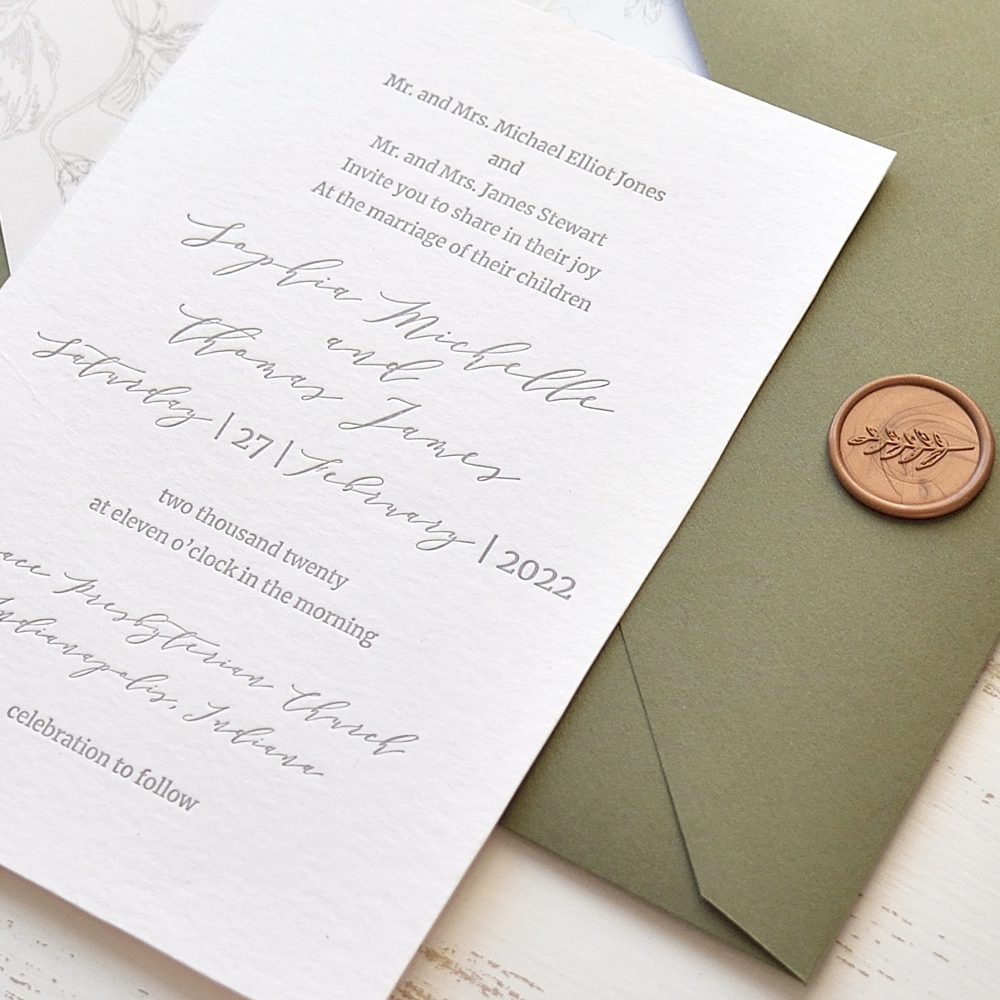 Mr. and Mrs. Michael Elliot Jones
and
Mr. and Mrs. James Stewart
Invite you to share in their joy
At the marriage of their children
Sophia Michelle
and
Thomas James
Saturday | 27 | February | 2022
two thousand twenty
at eleven o'clock in the morning
Presbyterian Church
Indianapolis, Indiana
celebration to follow